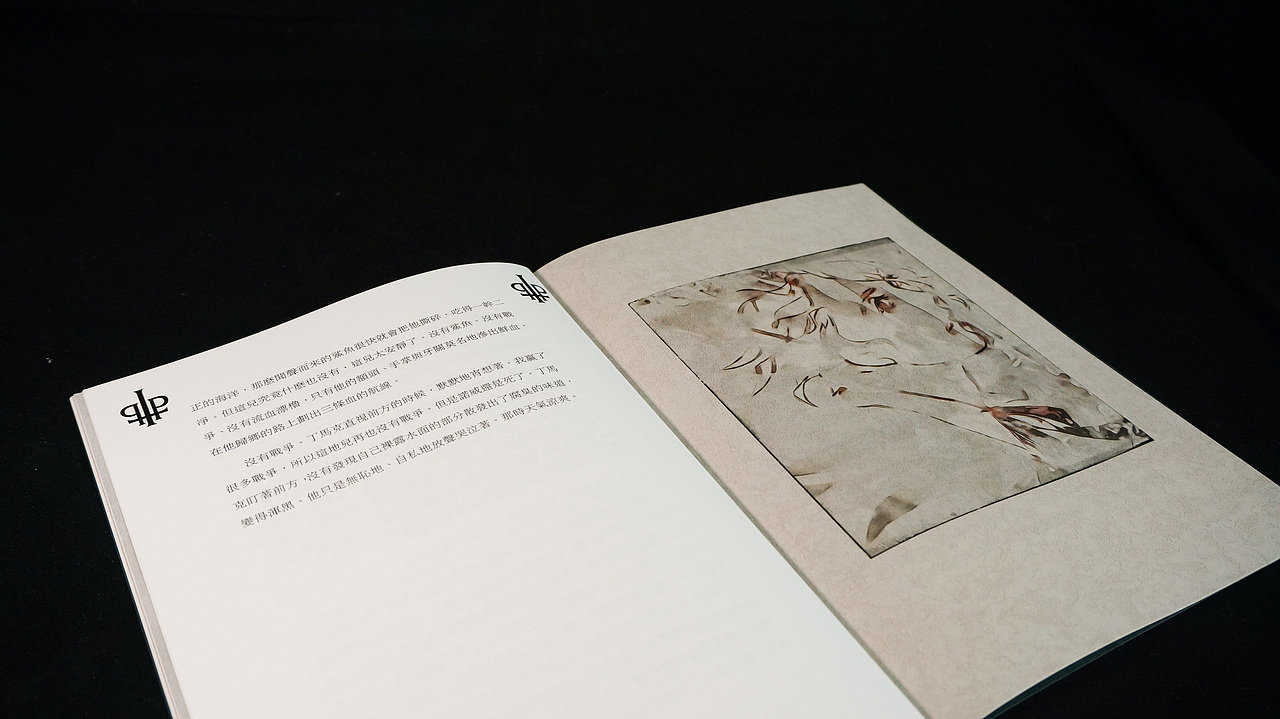 正的海洋，那麼聞聲而來的鯊魚很快就會把他撕碎，吃得一幹二
淨。但這兒究竟什麼也沒有，這兒太安靜了。沒有鯊魚、沒有戰
爭、沒有流血漂櫓，只有他的額頭、手掌與牙關莫名地滲出鮮血，
在他歸鄉的路上劃出三條血的航線。
沒有戰爭。丁馬克直視前方的時候，默默地肖想著，我贏了
很多戰爭，所以這地兒再也沒有戰爭。但是諾威還是死了。丁馬
克盯著前方，沒有發現自己裸露水面的部分散發出了腐臭的味道，
變得渾黑。他只是無恥地、自私地放聲哭泣著。那時天氣涼爽。